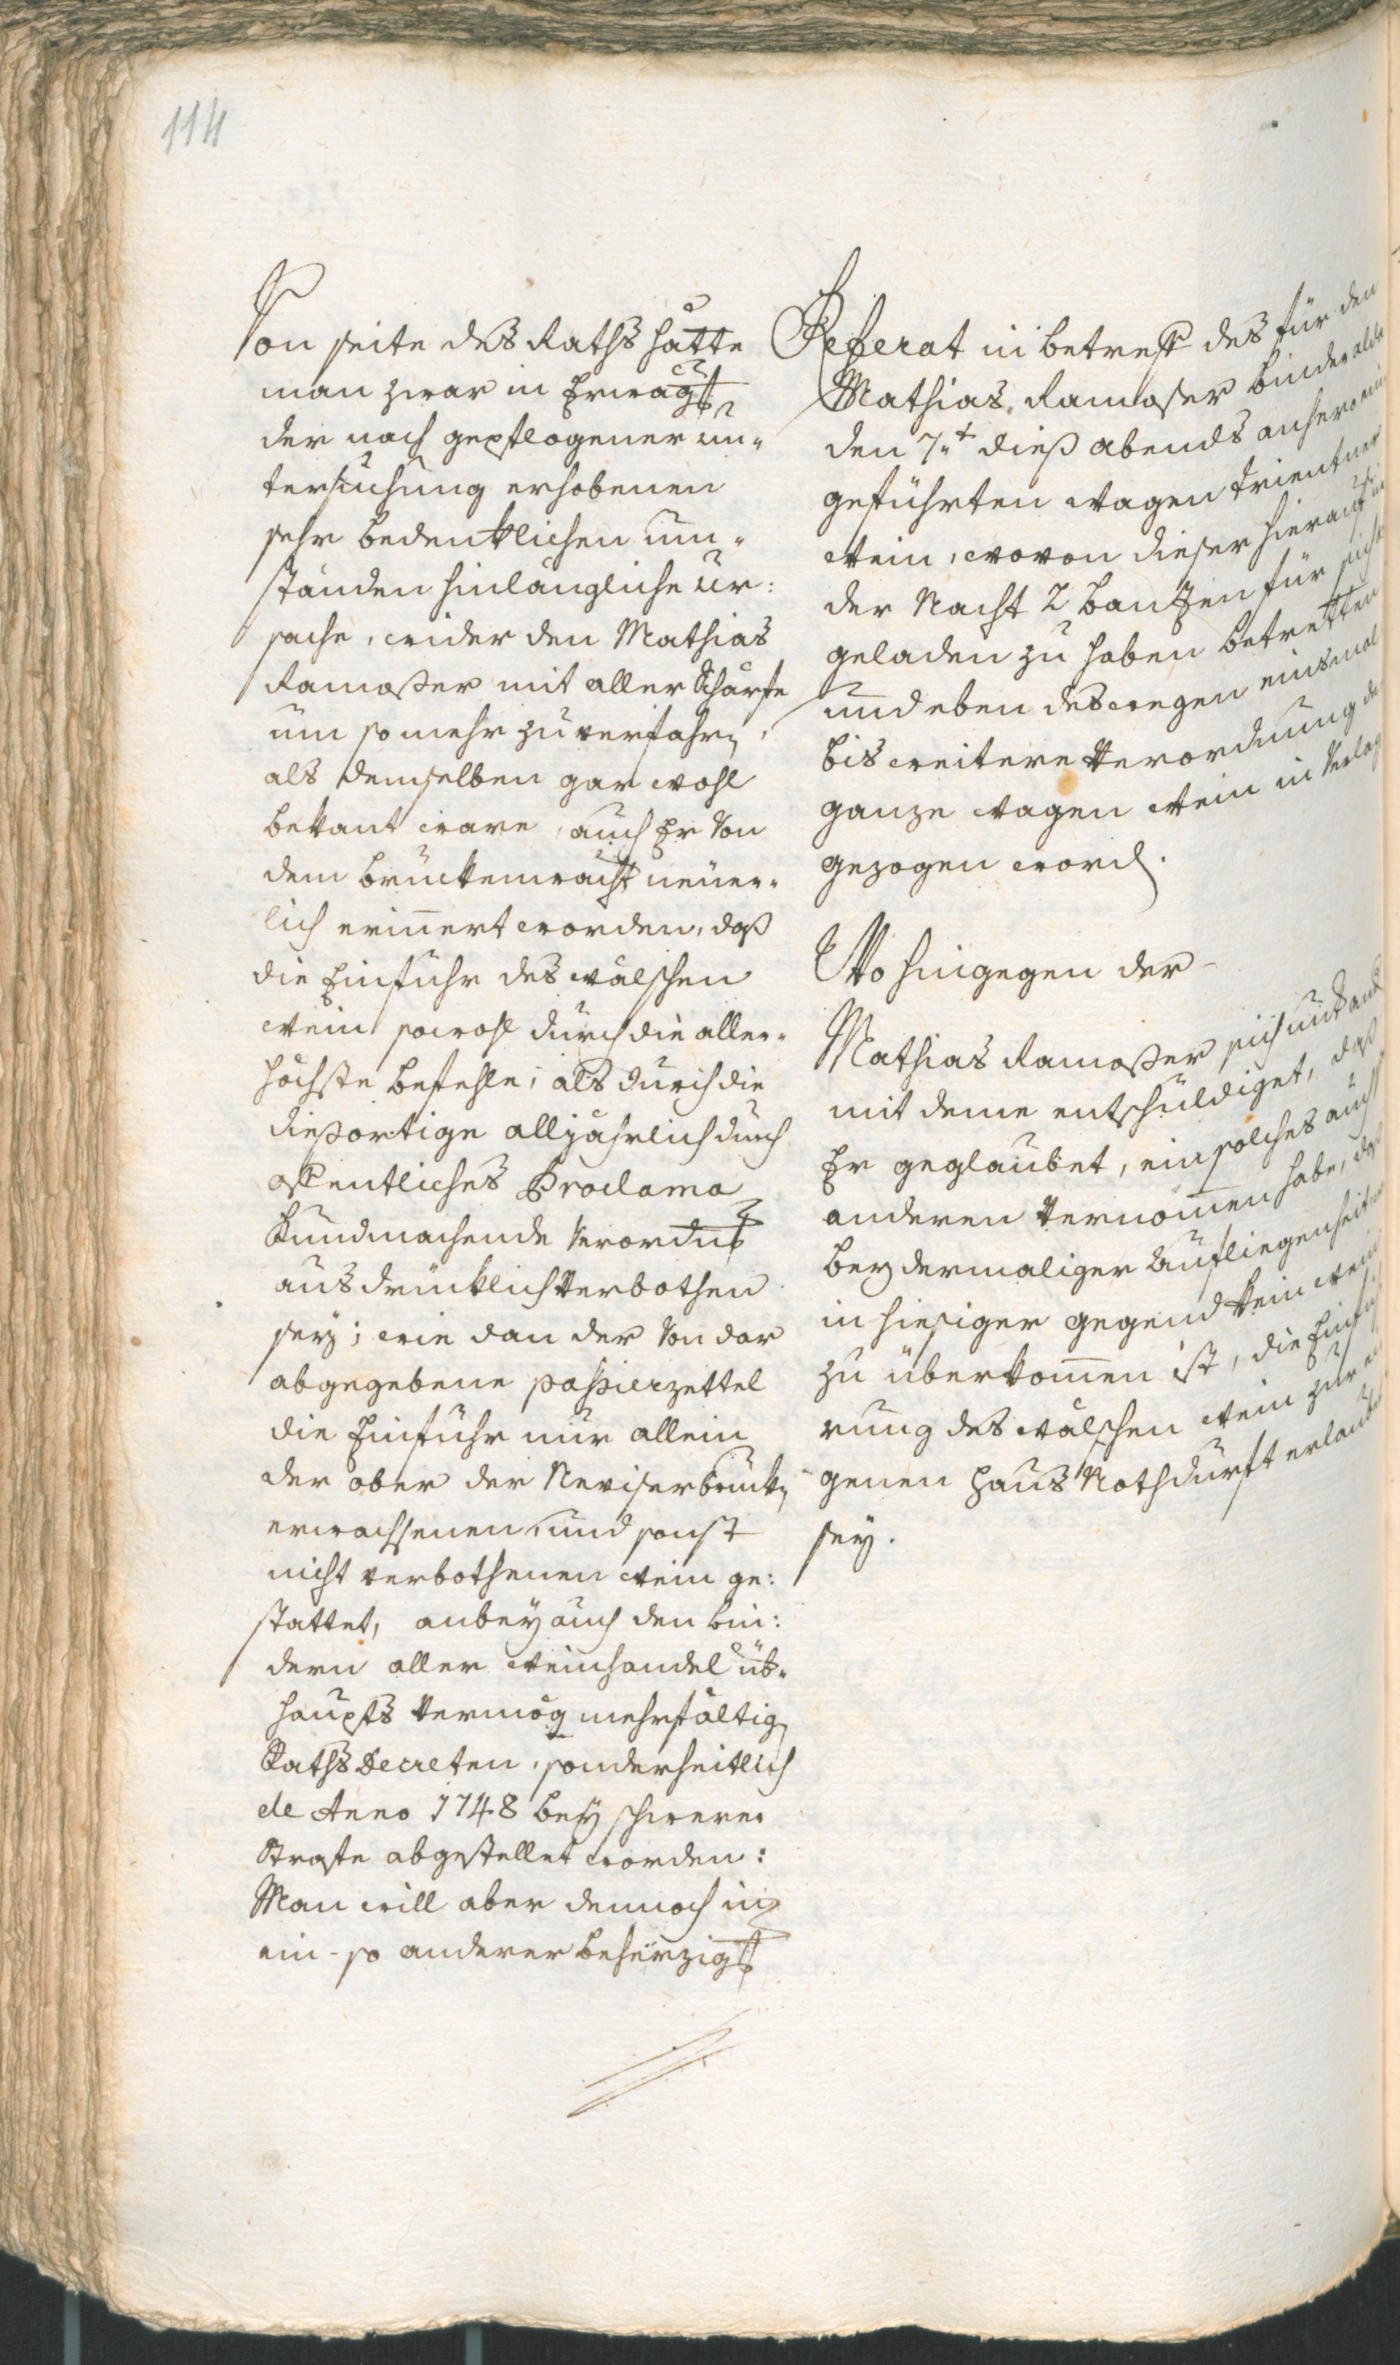 114
Von seite des Raths hätte
man zwar in Erwägg
der nach gepflogener un-
tersuchung erhobenen
sehr bedenklichen um-
ständen hinlängliche ur:
sache, wider den Mathias
Ramoser mit aller Schärfe
um so mehr zu verfahrn,
als demselben gar wohl
bekant ware, auch Er von
dem bruckenwacht neüer-
lich erinnert worden, daß
die Einfuhr des wälschen
wein sowohl durch die aller-
höchste befehle, als durch die
dießortige alljährlich durch
offentliches Proclama
kundmachende verordng
ausdrücklich verbothen
seÿ; wie dan der von dar
abgegebene passierzettel
die Einfuhr nur allein
der ober der Neviserbruckn
erwachsenen und sonst
nicht verbothenen wein ge:
stattet, anbeÿ auch den bin:
dern aller weinhandel üb-
haupts vermög mehrfältign
Raths Decreten, sonderheitlich
de Anno 1748 beÿ schwerer
Strafe abgestellet worden:
Man will aber dennoch in
ein- so anderer beherzigg
Referat in betreff des für den
Mathias Ramoser binder alda
den 7.t dieß abends anhero ein
geführten wagen trientner
wein, wovon dieser hierauf in
der Nacht 2 banzen für sich
geladen zu haben betretten
und eben deswegen einsmal
bis weitere verordnung der
ganze wagen wein in Verlag
gezogen word.
Wo hingegen der
Mathias Ramoser sich
mit deme entschuldiget, daß
Er geglaubet, ein solches auch
anderen vernomen habe, daß
beÿ dermaliger
in hiesiger gegend kein wein
zu überkomen ist, die Einfuh
rung des wälschen wein zur ei
genen Haus Nothdurft erlaubt
seÿ.